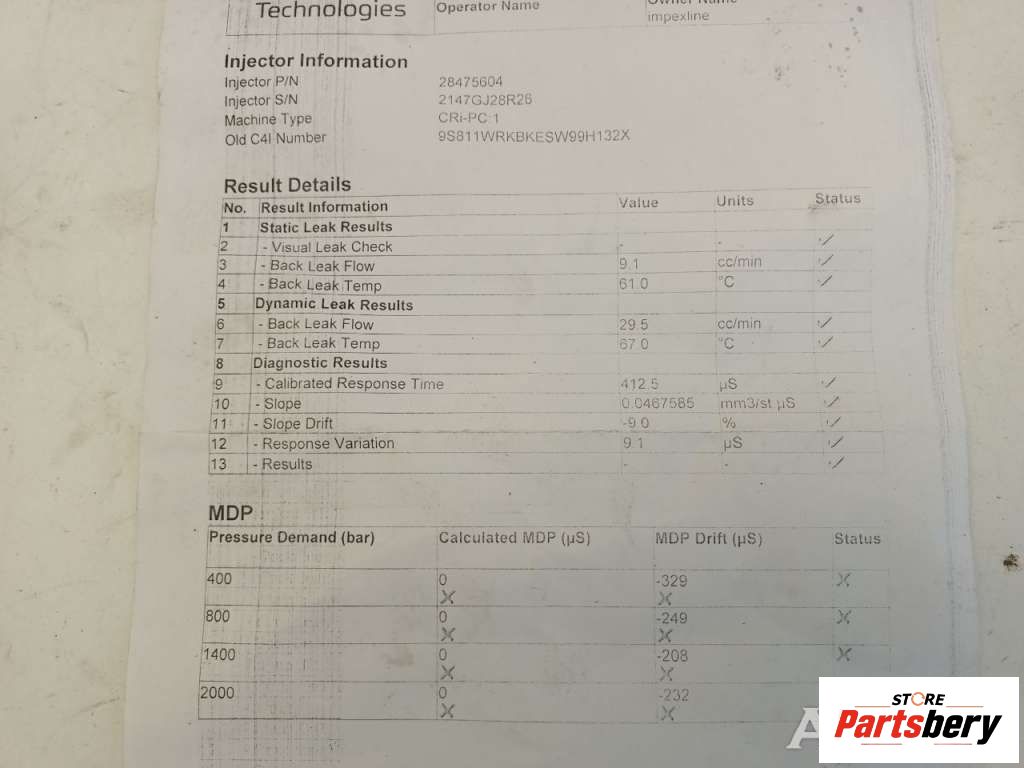 Technologies
Operator Name
Owner Name
impexline
Injector Information
Injector P/N 28475604
Injector S/N 2147GJ28R26
Machine Type CRi-PC 1
Old C4I Number 9S811WRKBKESW99H132X
Result Details
No. Result Information Value Units Status
1 Static Leak Results
2 - Visual Leak Check - - ✓
3 - Back Leak Flow 9.1 cc/min ✓
4 - Back Leak Temp 61.0 °C ✓
5 Dynamic Leak Results
6 - Back Leak Flow 29.5 cc/min ✓
7 - Back Leak Temp 67.0 °C ✓
8 Diagnostic Results
9 - Calibrated Response Time 412.5 µS ✓
10 - Slope 0.0467585 mm3/st µS ✓
11 - Slope Drift -9.0 % ✓
12 - Response Variation 9.1 µS ✓
13 - Results - - ✓
MDP
Pressure Demand (bar) Calculated MDP (µS) MDP Drift (µS) Status
400 0 -329 X
X X
800 0 -249 X
X X
1400 0 -208 X
X X
2000 0 -232
X X
STORE
Partsbery